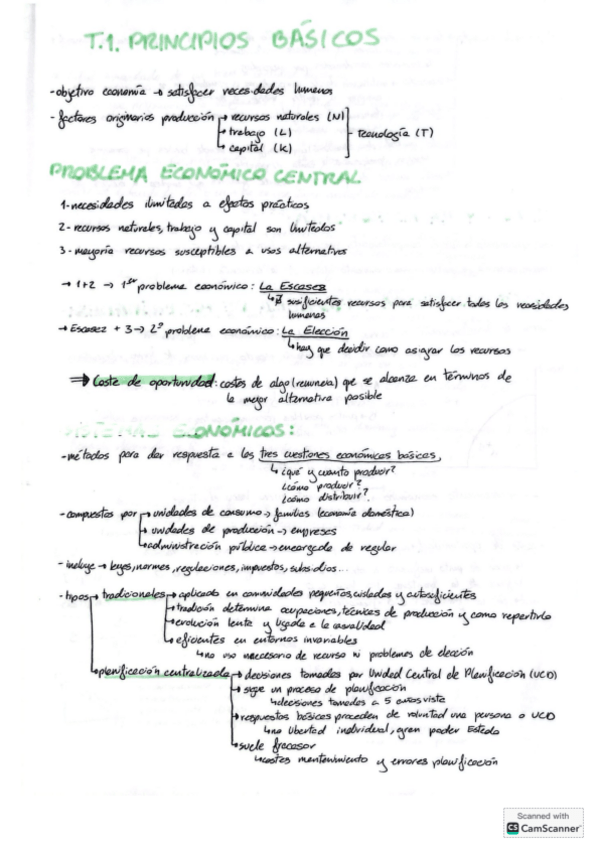 T.1. PRINCIPIOS BÁSICOS
-objetivo economía → satisfacer necesidades humanas
-factores originarios producción → recursos naturales (N)
↳ trabajo (L) - tecnología (T)
↳ capital (K)
PROBLEMA ECONÓMICO CENTRAL
1-necesidades ilimitadas a efectos prácticos
2-recursos naturales, trabajo y capital son limitados
3-mayoría recursos susceptibles a usos alternativos
→ 1+2 → 1er problema económico: La Escasez
↳ ∄ suficientes recursos para satisfacer todas las necesidades
humanas
→ Escasez + 3 → 2º problema económico: La Elección
↳ hay que decidir como asignar los recursos
⇒ Coste de oportunidad: costes de algo (renuncia) que se alcanza en términos de
la mejor alternativa posible
SISTEMAS ECONÓMICOS:
-métodos para dar respuesta a las tres cuestiones económicas básicas,
↳ ¿qué y cuanto producir?
¿cómo producir?
¿cómo distribuir?
-compuestos por → unidades de consumo → familias (economía doméstica)
↳ unidades de producción → empresas
↳ administración pública → encargada de regular
-incluye → leyes, normas, regulaciones, impuestos, subsidios...
-tipos → tradicionales → aplicado en comunidades pequeñas, aisladas y autosuficientes
↳ tradición determina ocupaciones, técnicas de producción y como repartirlo
↳ evolución lenta y ligada a la casualidad
↳ eficientes en entornos invariables
↳ no uso necesario de recurso ni problemas de elección
↳ planificación centralizada → decisiones tomadas por Unidad Central de Planificación (UCD)
↳ sige un proceso de planificación
↳ decisiones tomadas a 5 años vista
↳ respuestas básicas proceden de voluntad una persona o UCD
↳ no libertad individual, gran poder Estado
↳ suele fracasar
↳ costes mantenimiento y errores planificación
Scanned with
CS CamScanner